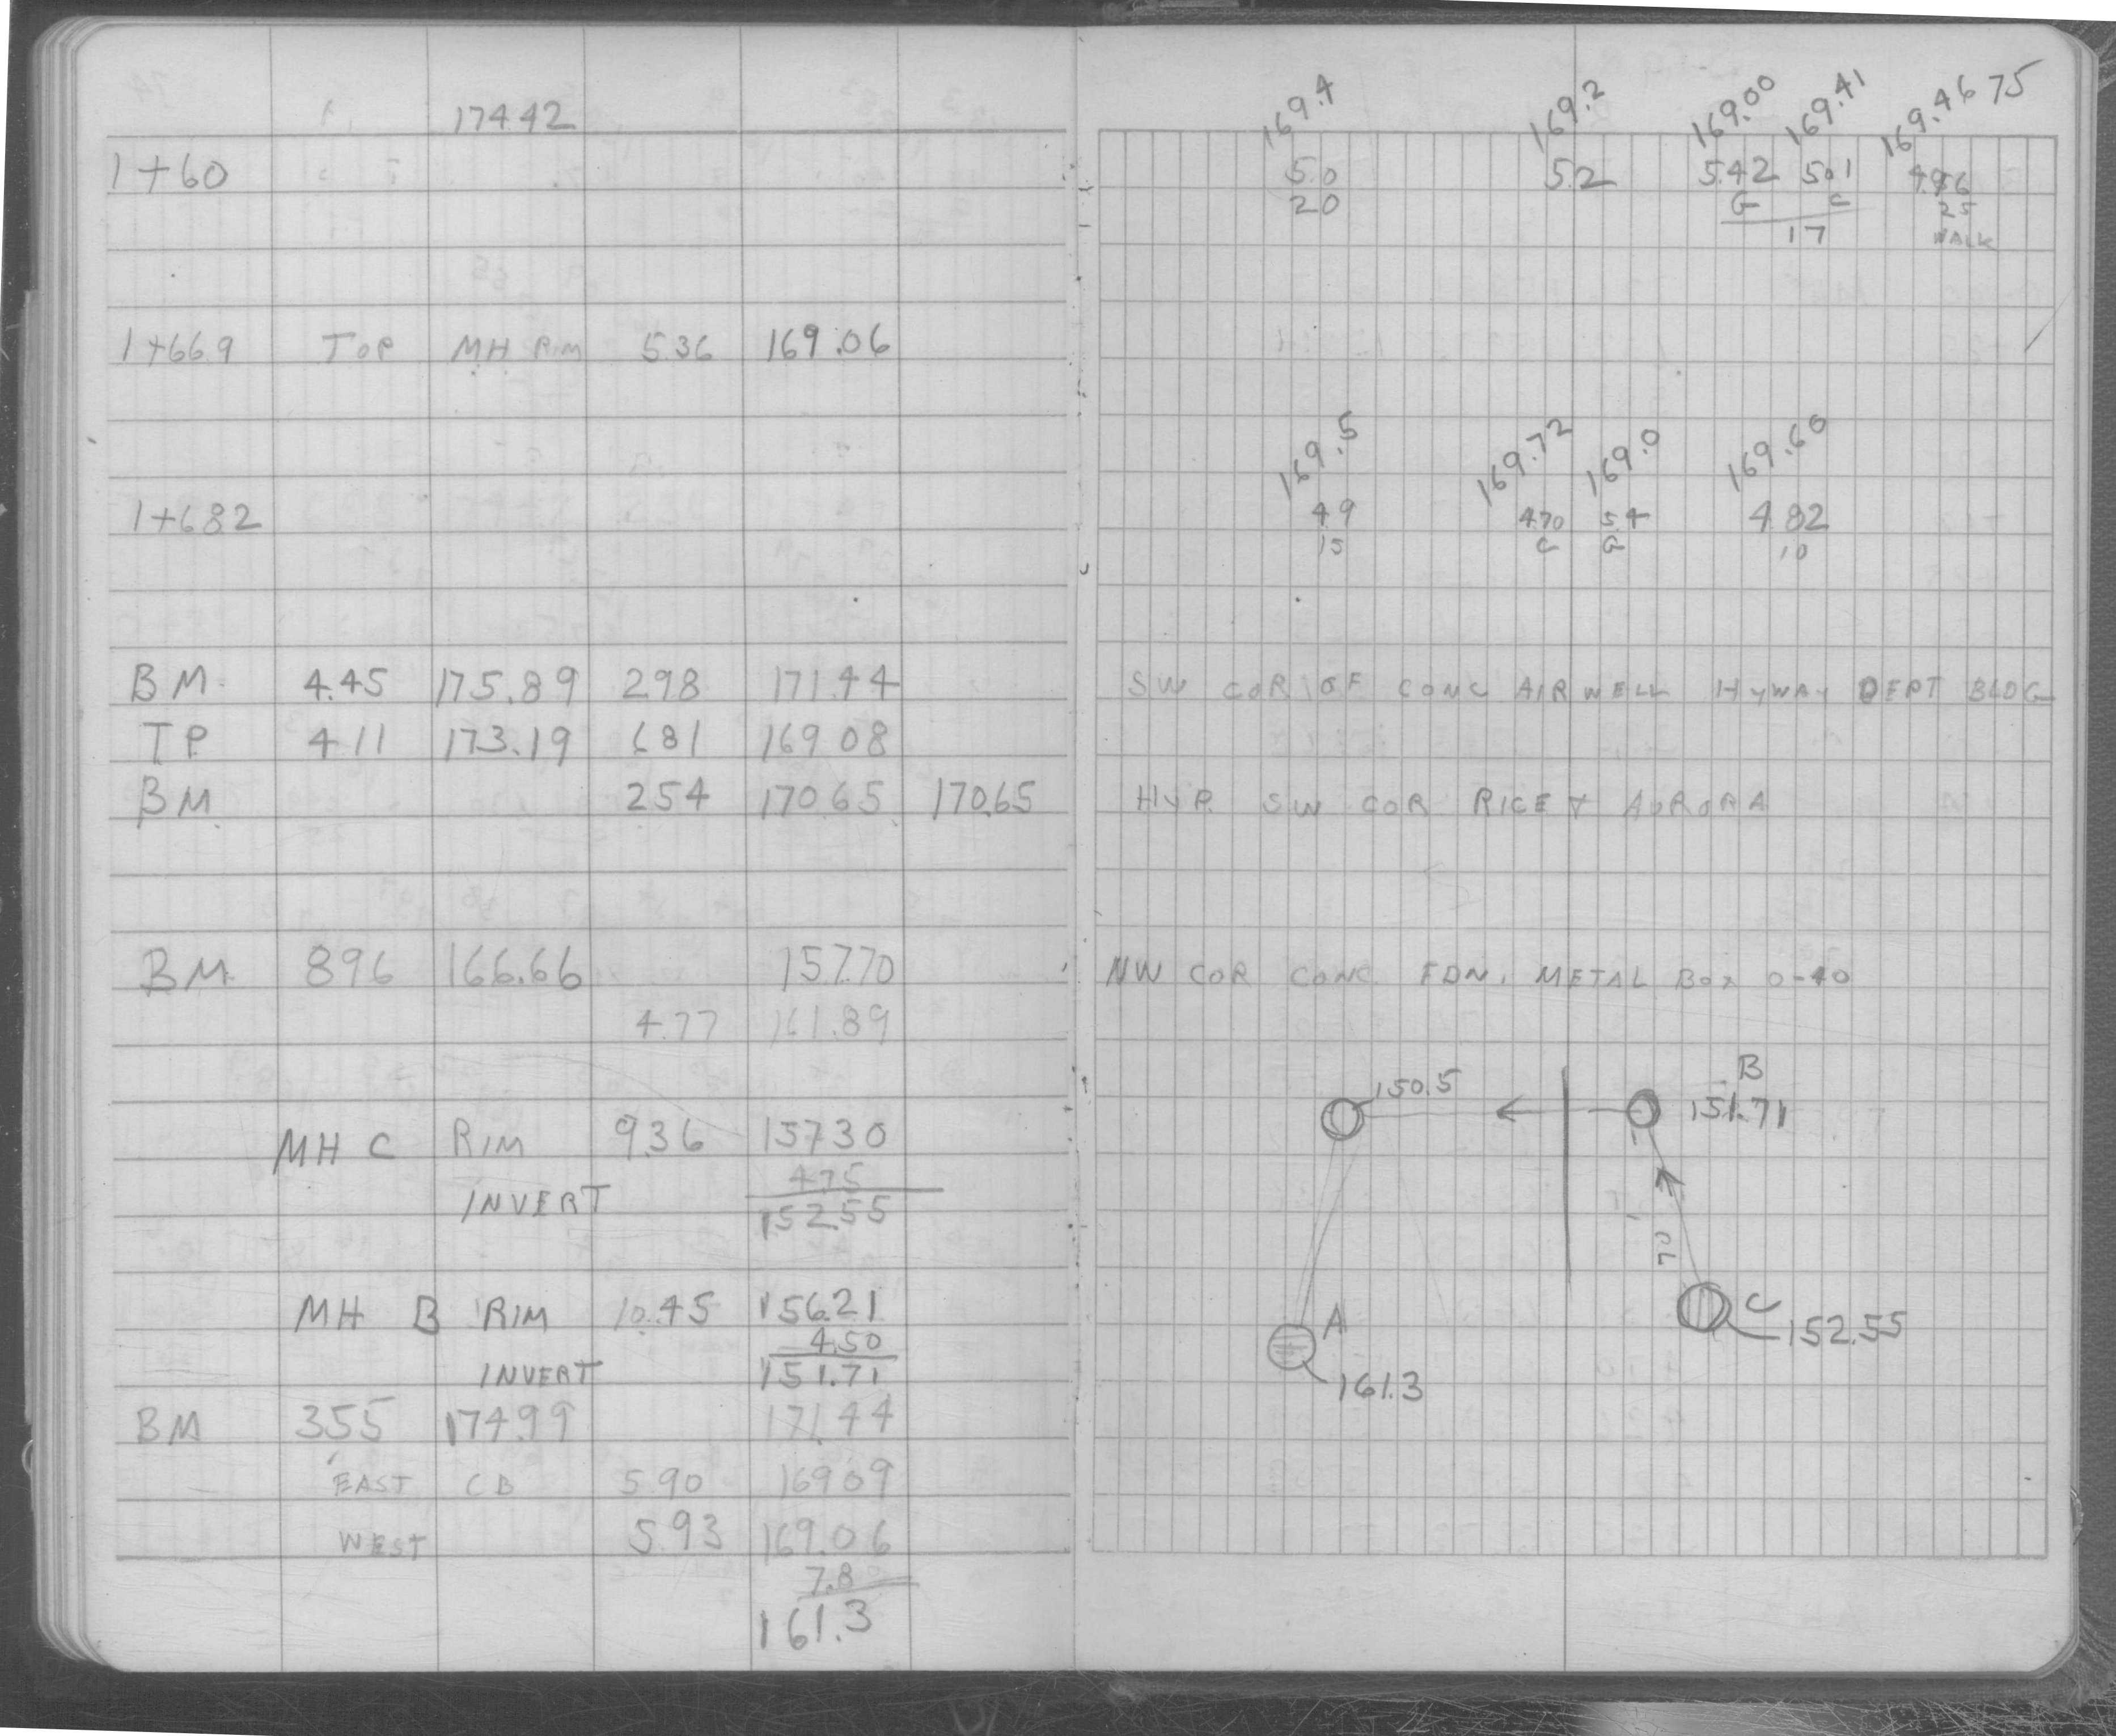 174.42
1+60
1+669 TOP MH RIM 5.36 169.06
1+682
BM 4.45 175.89 2.98 171.44
TP 4.11 173.19 6.81 169.08
BM 2.54 170.65 170.65
BM 8.96 166.66 157.70
4.77 161.89
MH C RIM 9.36 157.30
4.75
INVERT 152.55
MH B RIM 10.45 156.21
4.50
INVERT 151.71
BM 3.55 174.99 171.44
EAST CB 5.90 169.09
WEST 5.93 169.06
7.8
161.3
75
169.4 169.2 169.00 169.41 169.46
5.0 5.2 5.42 5.01 4.96
20 G C 25
17 WALK
169.5 169.72 169.0 169.60
4.9 4.70 5.4 4.82
15 C G 10
SW COR OF CONC AIR WELL HYWAY DEPT BLDG
HYP. SW COR RICE + AURORA
NW COR CONC. FDN. METAL BOX 0-40
150.5 B
151.71
70
A C
152.55
161.3